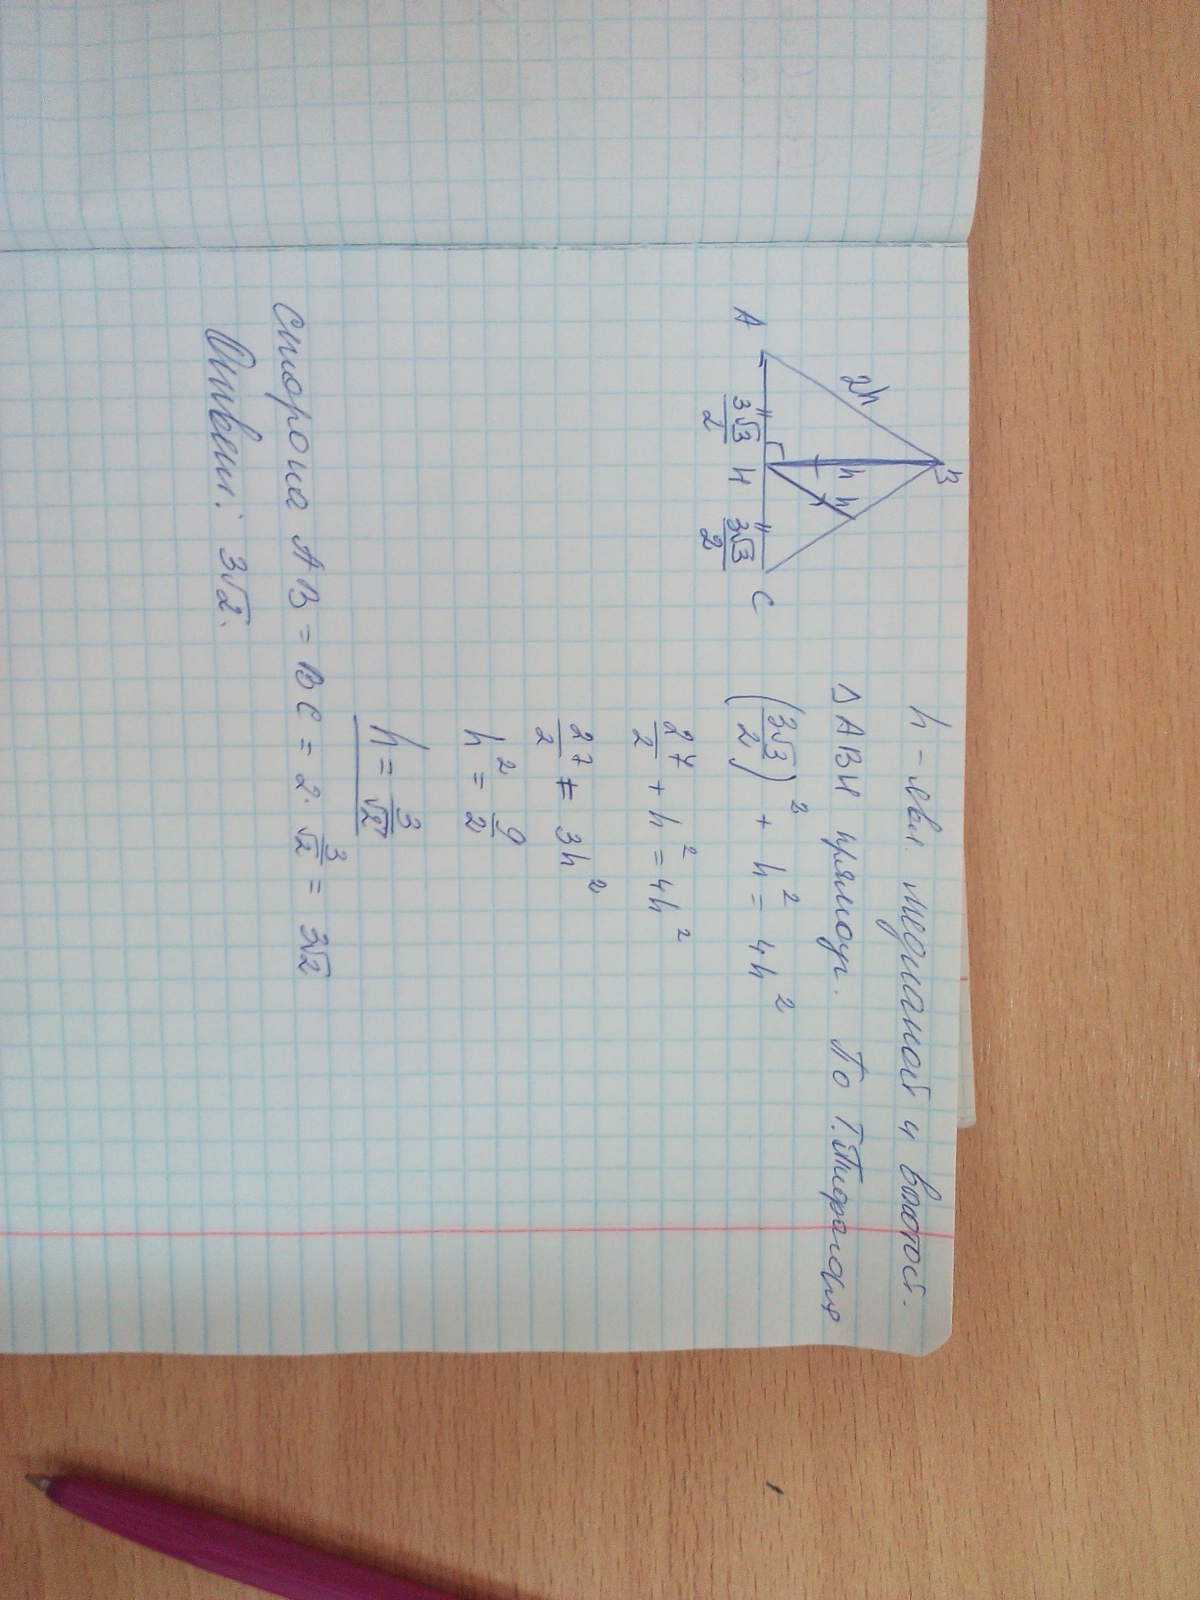 B
2h
h
h
A
3√3/2
H
3√3/2
C
h - явл. медианой и высотой.
Δ ABH прямоуг. По Т. Пифагора
(3√3/2)² + h² = 4h²
27/2 + h² = 4h²
27/2 = 3h²
h² = 9/2
h = 3/√2
Сторона AB = BC = 2 · 3/√2 = 3√2
Ответ: 3√2.